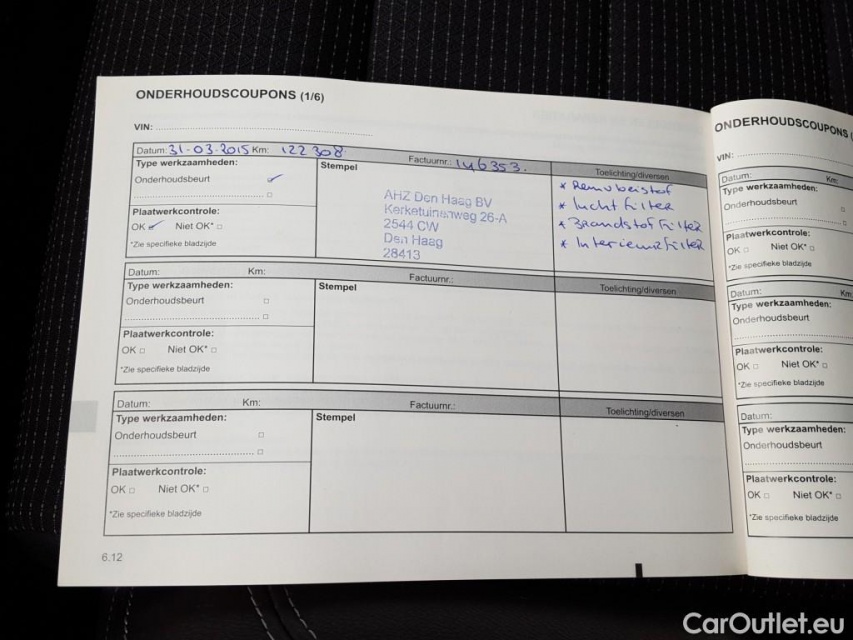 ONDERHOUDSCOUPONS (1/6)
VIN:
Datum: 31-03-2015 Km: 122 308 Factuurnr.: 146353. Toelichting/diversen
Type werkzaamheden:
Onderhoudsbeurt
Plaatwerkcontrole:
OK Niet OK*
*Zie specifieke bladzijde
Stempel
AHZ Den Haag BV
Kerketuinenweg 26-A
2544 CW
Den Haag
28413
* Remvloeistof
* luchtfilter
* Brandstoffilter
* Interieurfilter
Datum: Km: Factuurnr.: Toelichting/diversen
Type werkzaamheden:
Onderhoudsbeurt
Plaatwerkcontrole:
OK Niet OK*
*Zie specifieke bladzijde
Stempel
Datum: Km: Factuurnr.: Toelichting/diversen
Type werkzaamheden:
Onderhoudsbeurt
Plaatwerkcontrole:
OK Niet OK*
*Zie specifieke bladzijde
Stempel
6.12
ONDERHOUDSCOUPONS (
VIN:
Datum: Km:
Type werkzaamheden:
Onderhoudsbeurt
Plaatwerkcontrole:
OK Niet OK*
*Zie specifieke bladzijde
Datum: Km:
Type werkzaamheden:
Onderhoudsbeurt
Plaatwerkcontrole:
OK Niet OK*
*Zie specifieke bladzijde
Datum:
Type werkzaamheden:
Onderhoudsbeurt
Plaatwerkcontrole:
OK Niet OK*
*Zie specifieke bladzijde
CarOutlet.eu